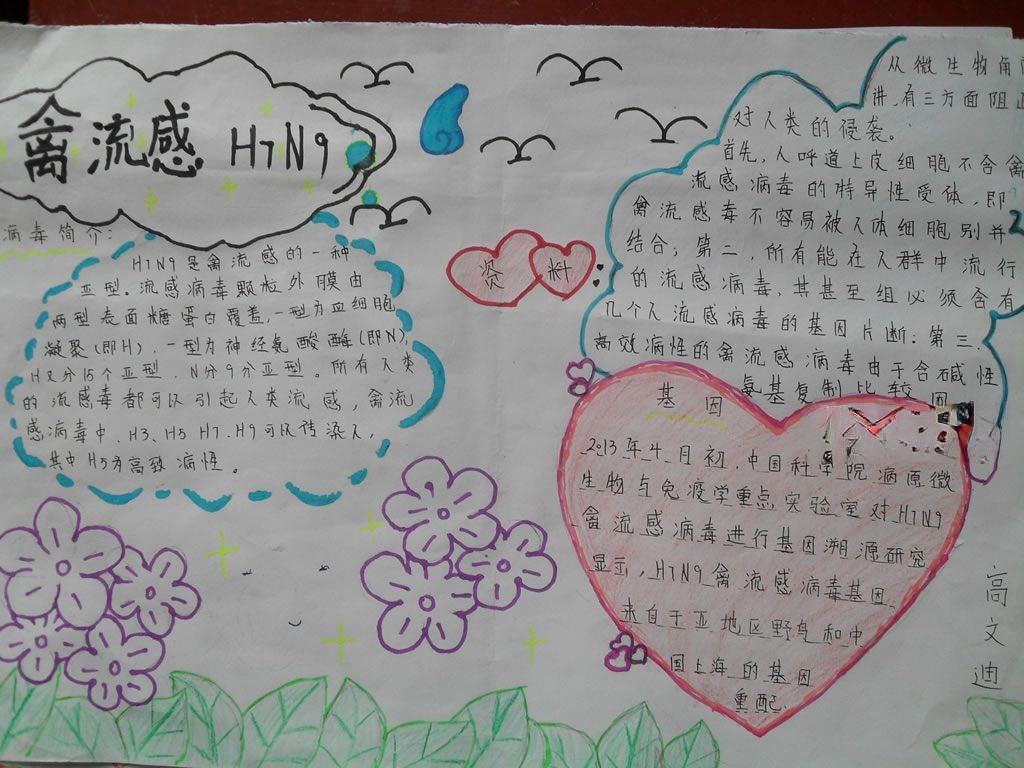 禽流感 H7N9
病毒简介:
H7N9是禽流感的一种
亚型。流感病毒颗粒外膜由
两型表面糖蛋白覆盖,一型为血细胞
凝聚(即H),一型为神经氨酸酶(即N),
H又分15个亚型,N分9分亚型。所有人类
的流感毒都可以引起人类流感,禽流
感病毒中,H3、H5 H7、H9可以传染人,
其中H5为高致病性。
资料
从微生物角
讲,有三方面阻
对人类的侵袭。
首先,人呼道上皮细胞不含禽
流感病毒的特异性受体,即
禽流感毒不容易被人体细胞别并
结合;第二,所有能在人群中流行
的流感病毒,其甚至组必须含有
几个人流感病毒的基因片断:第三、
高效病性的禽流感病毒由于含碱性
氨基复制比较因
基因
2013年4月初,中国科学院病原微
生物与免疫学重点实验室对H7N9
禽流感病毒进行基因溯源研究
显示,H7N9禽流感病毒基因
来自于亚地区野鸟和中
国上海的基因
重配.
高文迪